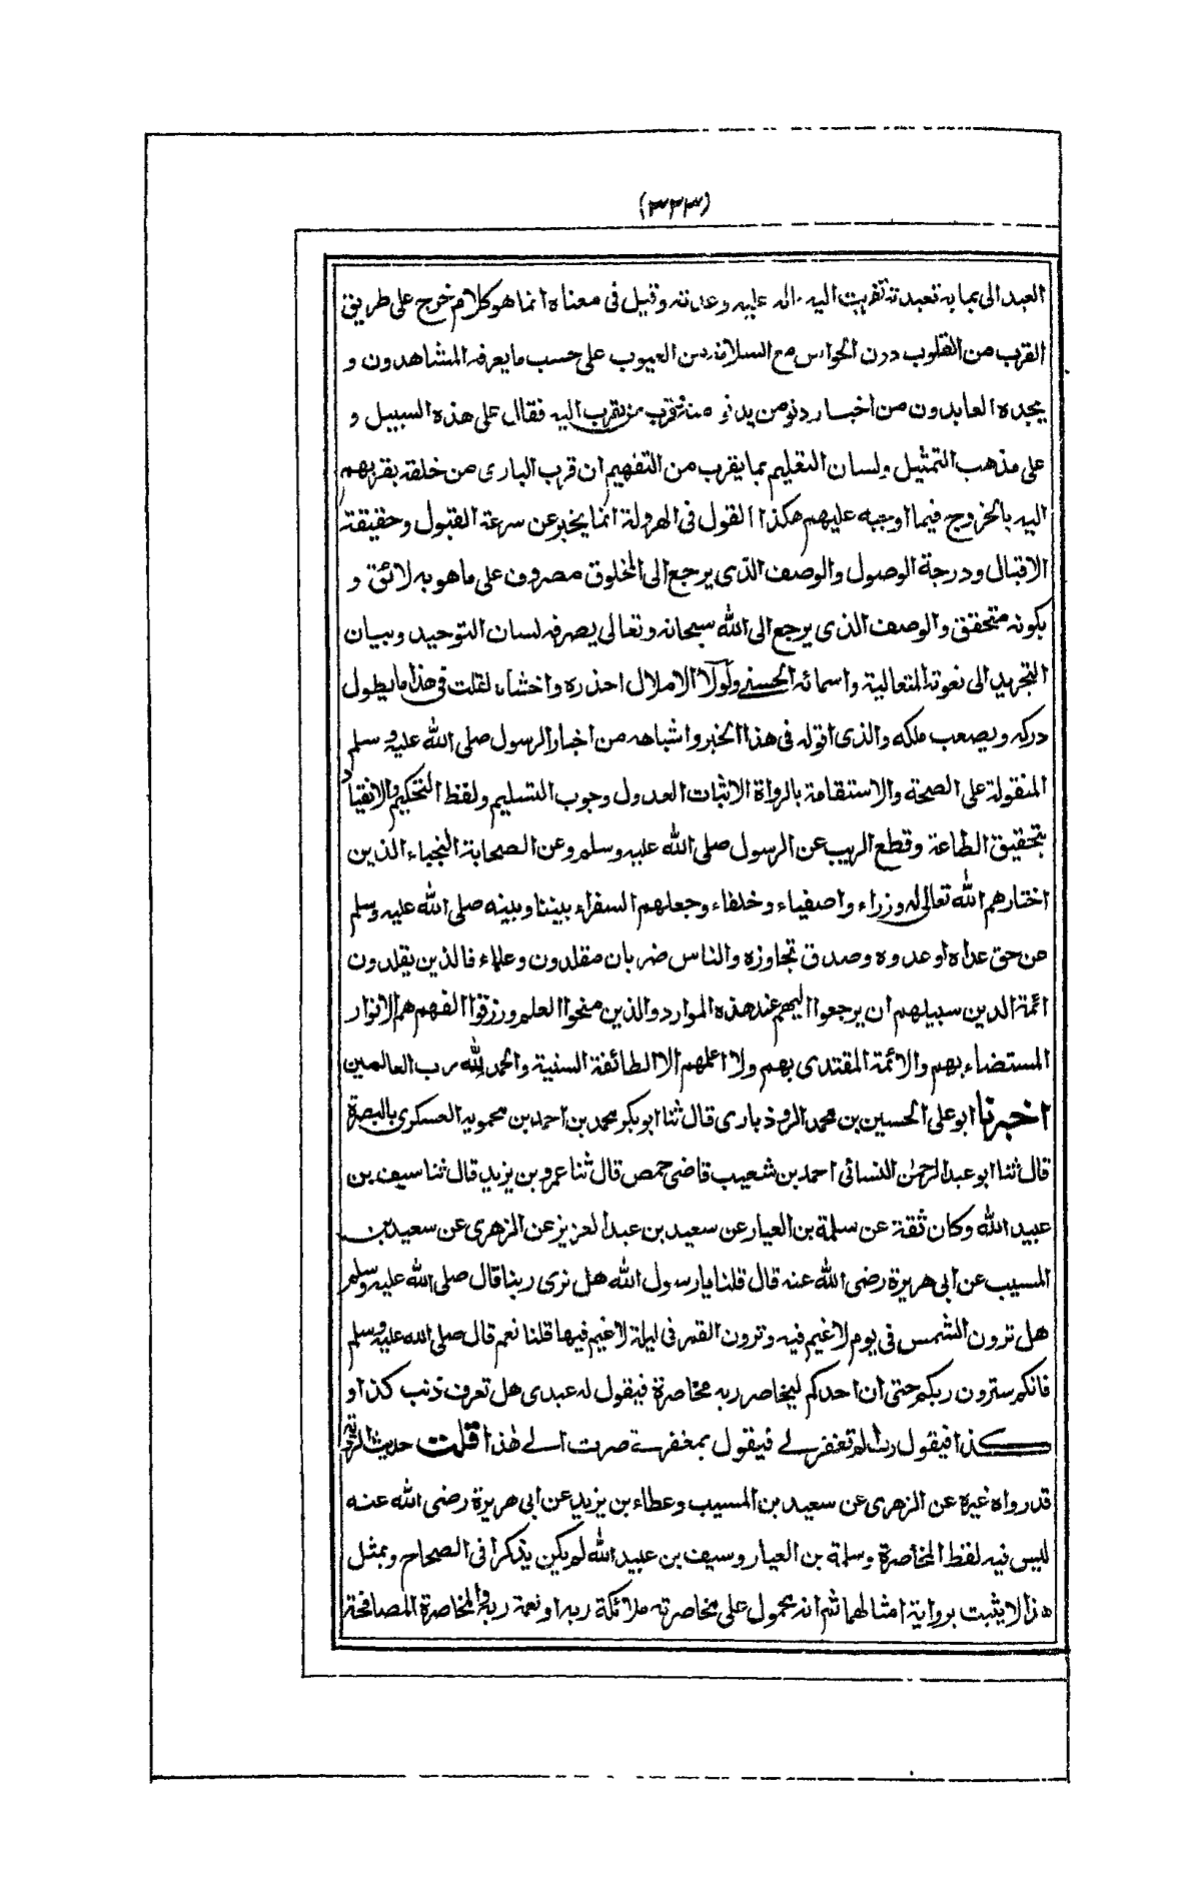 (٣٣٣)
العبد الى بما به تعبدته تقربت اليه وقيل فى معناه انما هو كلام خرج على طريق
القرب من القلوب درن الحواس مع السلامة من العيوب على حسب ما يعرفه المشاهدون و
يجده العابدون من اخبار دنو من يدنو منه وتقرب من يقرب اليه فقال على هذه السبيل و
على مذهب التمثيل ولسان التعليم بما يقرب من التفهيم ان قرب البارى من خلقه بقربهم
اليه بالخروج فيما اوجبه عليهم هكذا القول فى الهرولة انما يخبر عن سرعة القبول وحقيقة
الاقبال ودرجة الوصول والوصف الذى يرجع الى المخلوق مصروف على ما هو به لائق و
بكونه متحقق والوصف الذى يرجع الى الله سبحانه وتعالى يصرفه لسان التوحيد وبيان
التجريد الى نعوته المتعالية واسمائه الحسنى ولولا الاملال احذره واخشاه لقلت فى هذا ما يطول
دركه ويصعب ملكه والذى اقوله فى هذا الخبر واشباهه من اخبار الرسول صلى الله عليه وسلم
المنقولة على الصحة والاستقامة بالرواة الاثبات العدول وجوب التسليم ولفظ التحكيم والانقياد
بتحقيق الطاعة وقطع الريب عن الرسول صلى الله عليه وسلم وعن الصحابة النجباء الذين
اختارهم الله تعالى له وزراء واصفياء وخلفاء وجعلهم السفراء بيننا وبينه صلى الله عليه وسلم
عن حق عداه او عدوه وصدق تجاوزه والناس ضربان مقلدون وعلماء فالذين يقلدون
ائمة الدين سبيلهم ان يرجعوا اليهم عند هذه الموارد والذين منحوا العلم ورزقوا الفهم هم الانوار
المستضاء بهم والائمة المقتدى بهم ولا اعلمهم الا الطائفة السنية والحمد لله رب العالمين
اخبرنا ابو على الحسين بن محمد الروذبارى قال ثنا ابوبكر محمد بن احمد بن محمويه العسكرى بالبصرة
قال ثنا ابو عبد الرحمن النسائى احمد بن شعيب قاضى حمص قال ثنا عمرو بن يزيد قال ثنا سيف بن
عبيد الله وكان ثقة عن سلمة بن العيار عن سعيد بن عبد العزيز عن الزهرى عن سعيد بن
المسيب عن ابى هريرة رضى الله عنه قال قلنا يا رسول الله هل نرى ربنا قال صلى الله عليه وسلم
هل ترون الشمس فى يوم لا غيم فيه وترون القمر فى ليلة لا غيم فيها قلنا نعم قال صلى الله عليه وسلم
فانكم سترون ربكم حتى ان احدكم ليخاصر ربه مخاصرة فيقول له عبدى هل تعرف ذنب كذا و
كذا فيقول رب الم تغفر لى فيقول بمغفرتى صرت الى هذا قلت حديث الرؤية
قد رواه غيره عن الزهرى عن سعيد بن المسيب وعطاء بن يزيد عن ابى هريرة رضى الله عنه
ليس فيه لفظ المخاصرة وسلمة بن العيار وسيف بن عبيد الله لم يكن يذكرا فى الصحاح وبمثل
هذا لا يثبت برواية امثالهما ثم انه محمول على مخاصرته ملائكة ربه او نعمة ربه والمخاصرة المصافحة